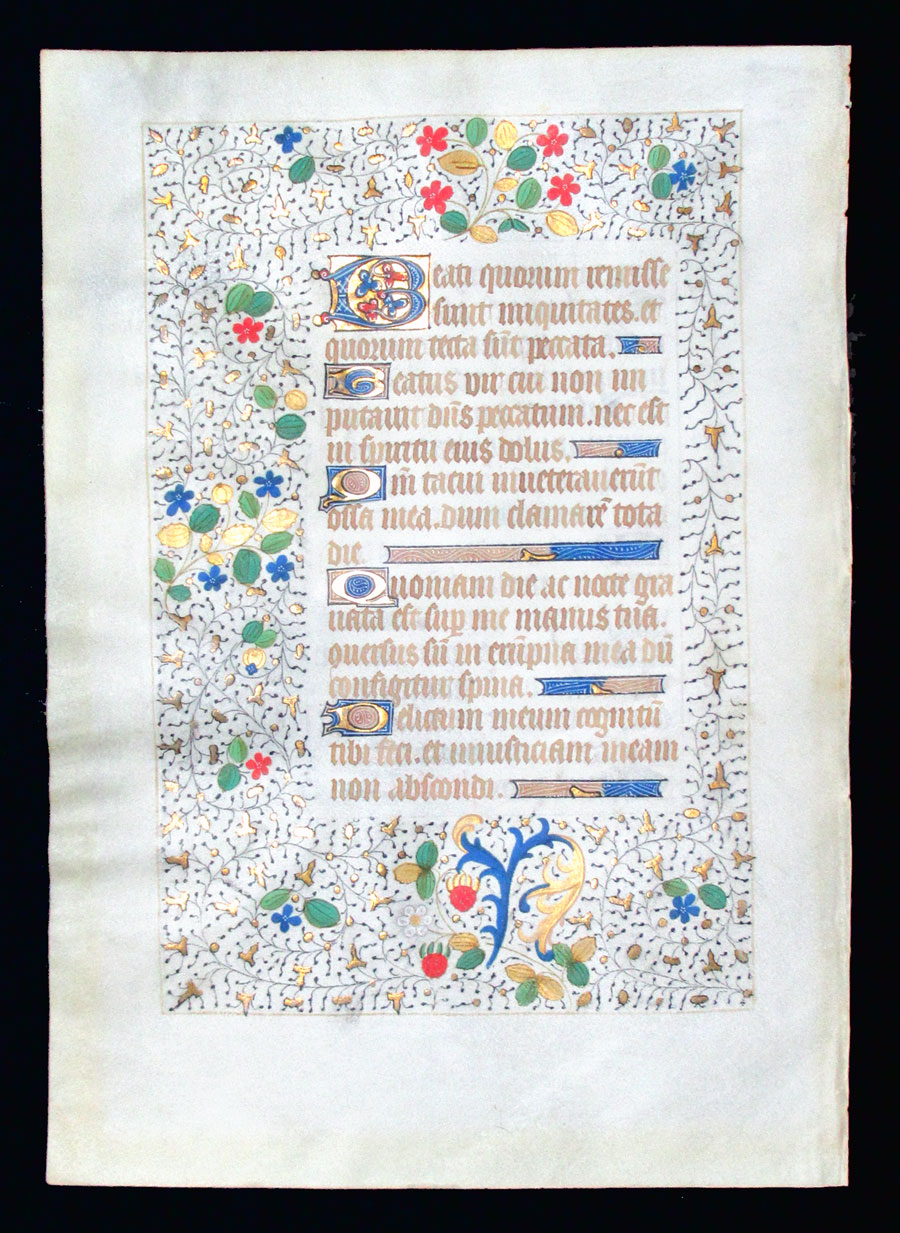 Beati quorum remisse
sunt iniquitates. et
quorum tecta sūt peccata.
Beatus vir cui non im
putauit dn̄s peccatum. nec est
in spiritu eius dolus.
Qm̄ tacui inueterauerūt
ossa mea. dum clamarē tota
die
Quoniam die ac nocte gra
uata est sup̱ me manus tua.
ↄuersus sū in erūpna mea dū
configitur spina.
Delictum meum cognitū
tibi feci. et iniusticiam meam
non abscondi.